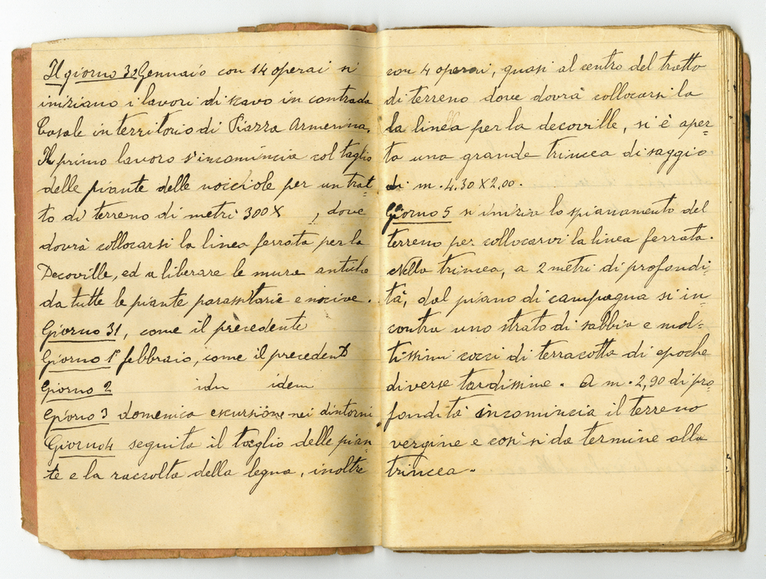 Il giorno 30 Gennaio con 14 operai si
iniziano i lavori di scavo in contrada
Casale in territorio di Piazza Armerina.
Il primo lavoro s'incomincia col taglio
delle piante delle nocciole per un trat-
to di terreno di metri 300 X , dove
dovrà collocarsi la linea ferrata per la
Decoville, ed a liberare le mura antiche
da tutte le piante parassitarie e nocive.
Giorno 31, come il precedente
Giorno 1° febbraio, come il precedente
Giorno 2 idm idem
Giorno 3 domenica escursione nei dintorni
Giorno 4 seguita il taglio delle pian-
te e la raccolta della legna, inoltre
con 4 operai, quasi al centro del tratto
di terreno dove dovrà collocarsi la
la linea per la decoville, si è aper-
ta una grande trincea di saggio
di m. 4.30 X 2,00.
Giorno 5 si inizia lo spianamento del
terreno per collocarvi la linea ferrata.
Nella trincea, a 2 metri di profondi-
tà, dal piano di campagna si in-
contra uno strato di sabbia e mol-
tissimi cocci di terracotta di epoche
diverse tardissime. A m. 2,90 di pro
fondità incomincia il terreno
vergine e così si da termine alla
trincea.